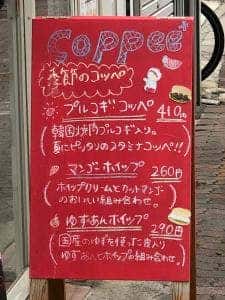 Coppee
季節のコッペ
プルコギコッペ 410円
(韓国焼肉プルコギ入り。
夏にピッタリのスタミナコッペ!!)
マンゴーホイップ 260円
(ホイップクリームとカットマンゴー
のおいしい組み合わせ。)
ゆずあんホイップ 290円
(国産のゆずを使った皮入り
ゆずあんとホイップの組み合わせ。)